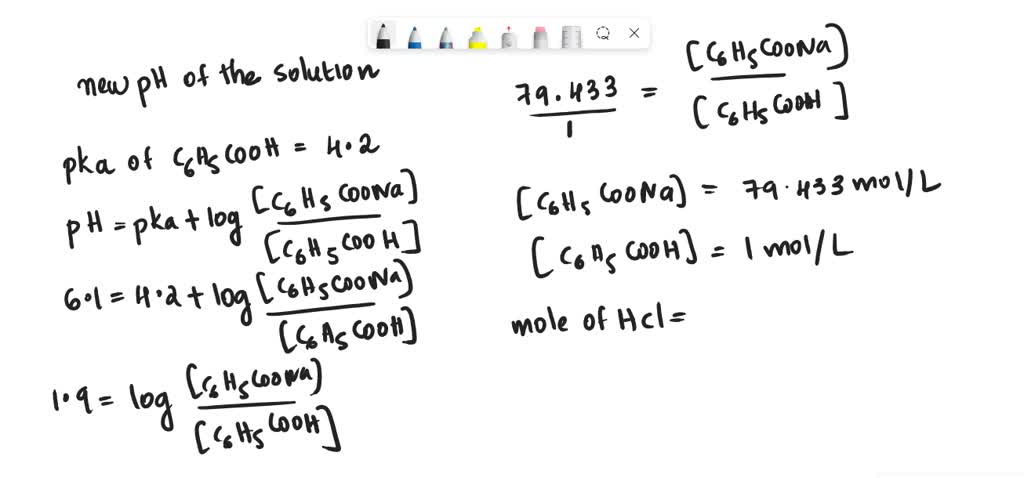 new pH of the solution
pka of C6H5COOH = 4.2
pH = pka + log [C6H5COONa] / [C6H5COOH]
6.1 = 4.2 + log [C6H5COONa) / [C6H5COOH]
1.9 = log [C6H5COONa) / [C6H5COOH]
79.433 / 1 = [C6H5COONa) / [C6H5COOH]
[C6H5COONa] = 79.433 mol/L
[C6H5COOH] = 1 mol/L
mole of Hcl =